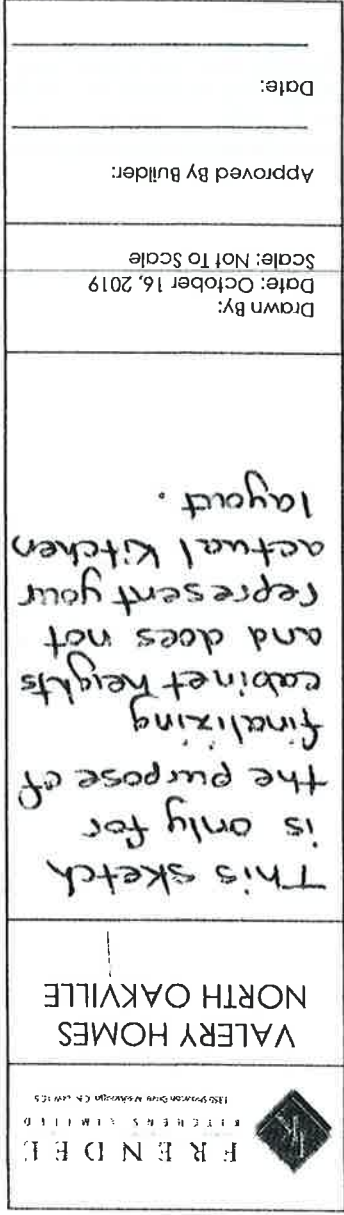 FRENDEL
KITCHENS LIMITED
VALERY HOMES
NORTH OAKVILLE
This sketch
is only for
the purpose of
finalizing
cabinet heights
and does not
represent your
actual kitchen
layout.
Drawn By:
Date: October 16, 2019
Scale: Not To Scale
Approved By Builder:
Date: